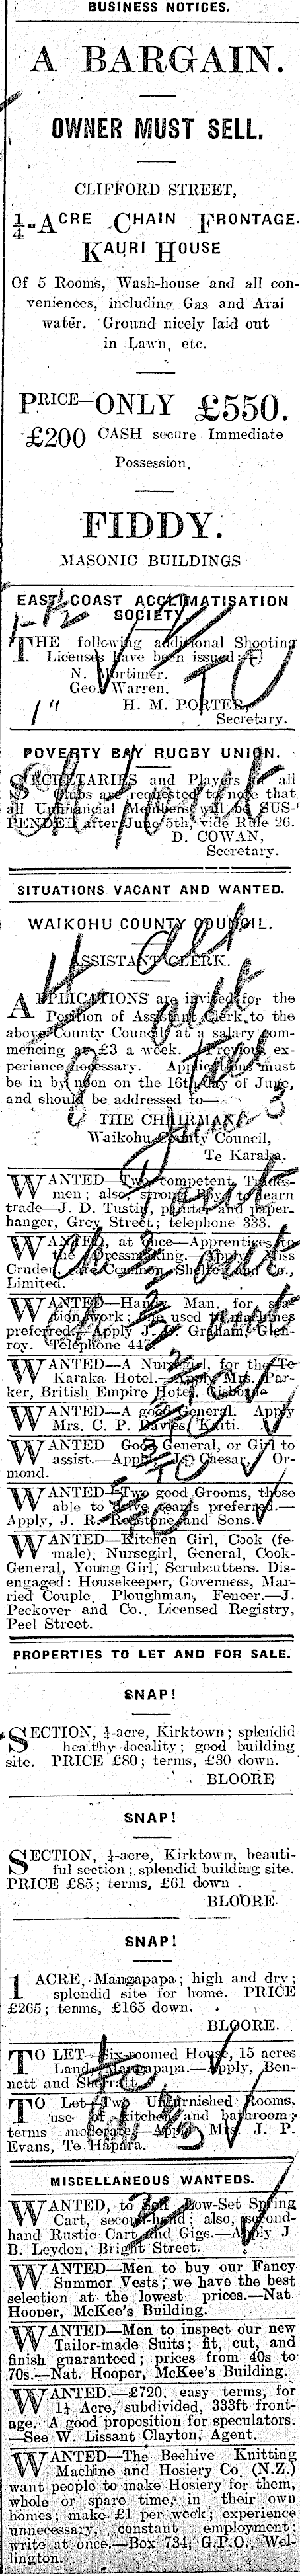 BUSINESS NOTICES.
A BARGAIN.
OWNER MUST SELL.
CLIFFORD STREET,
¼-ACRE CHAIN FRONTAGE.
KAURI HOUSE
Of 5 Rooms, Wash-house and all con-
veniences, including Gas and Arai
water. Ground nicely laid out
in Lawn, etc.
PRICE—ONLY £550.
£200 CASH secure Immediate
Possession.
FIDDY.
MASONIC BUILDINGS
EAST COAST ACCLIMATISATION
SOCIETY.
THE following additional Shooting
Licenses have been issued:—
N. Mortimer.
Geo. Warren.
H. M. PORTER,
Secretary.
POVERTY BAY RUGBY UNION.
SECRETARIES and Players of all
Clubs are requested to note that
all Unfinancial Members will be SUS-
PENDED after June 5th, vide Rule 26.
D. COWAN,
Secretary.
SITUATIONS VACANT AND WANTED.
WAIKOHU COUNTY COUNCIL.
ASSISTANT CLERK.
APPLICATIONS are invited for the
Position of Assistant Clerk to the
above County Council at a salary com-
mencing at £3 a week. Previous ex-
perience necessary. Applications must
be in by noon on the 16th day of June,
and should be addressed to—
THE CHAIRMAN,
Waikohu County Council,
Te Karaka.
WANTED—Two competent Trades-
men; also strong Boy to learn
trade—J. D. Tustin, printer and paper-
hanger, Grey Street; telephone 333.
WANTED, at once—Apprentices to
the Dressmaking.—Apply Miss
Cruden, care Common, Shelton and Co.,
Limited.
WANTED—Handy Man, for sta-
tion work; one used to machines
preferred.—Apply J. C. Graham, Glen-
roy. Telephone 44
WANTED—A Nursegirl, for the Te
Karaka Hotel.—Apply Mrs. Par-
ker, British Empire Hotel, Gisborne
WANTED—A good General. Apply
Mrs. C. P. Davies Kaiti.
WANTED Good General, or Girl to
assist.—Apply Caesar, Or-
mond.
WANTED—Two good Grooms, those
able to drive teams preferred.—
Apply, J. R. Redstone and Sons.
WANTED—Kitchen Girl, Cook (fe-
male), Nursegirl, General, Cook-
General, Young Girl, Scrubcutters. Dis-
engaged: Housekeeper, Governess, Mar-
ried Couple, Ploughman, Fencer.—J.
Peckover and Co., Licensed Registry,
Peel Street.
PROPERTIES TO LET AND FOR SALE.
SNAP!
SECTION, ¼-acre, Kirktown; splendid
healthy locality; good building
site. PRICE £80; terms, £30 down.
BLOORE
SNAP!
SECTION, ¼-acre, Kirktown, beauti-
ful section; splendid building site.
PRICE £85; terms, £61 down.
BLOORE.
SNAP!
1 ACRE, Mangapapa; high and dry;
splendid site for home. PRICE
£265; terms, £165 down.
BLOORE.
TO LET—Six-roomed House, 15 acres
Land, Mangapapa.—Apply, Ben-
nett and Sherratt.
TO Let—Two Unfurnished Rooms,
use of kitchen and bathroom;
terms moderate—Apply Mrs J. P.
Evans, Te Hapara.
MISCELLANEOUS WANTEDS.
WANTED, to Sell, Low-Set Spring
Cart, second-hand; also, second-
hand Rustic Cart and Gigs.—Apply J.
B. Leydon, Bright Street.
WANTED—Men to buy our Fancy
Summer Vests; we have the best
selection at the lowest prices.—Nat.
Hooper, McKee's Building.
WANTED—Men to inspect our new
Tailor-made Suits; fit, cut, and
finish guaranteed; prices from 40s to
70s.—Nat. Hooper, McKee's Building.
WANTED.—£720. easy terms, for
1¼ Acre, subdivided, 333ft front-
age. A good proposition for speculators.
—See W. Lissant Clayton, Agent.
WANTED—The Beehive Knitting
Machine and Hosiery Co. (N.Z.)
want people to make Hosiery for them,
whole or spare time, in their own
homes; make £1 per week; experience
unnecessary, constant employment;
write at once.—Box 734, G.P.O., Wel-
lington.